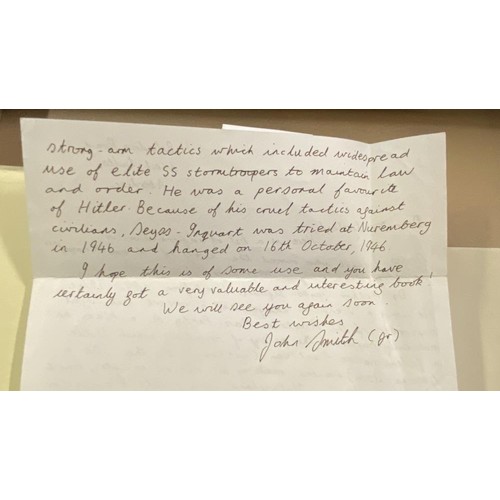 strong-arm tactics which included widespread
use of elite SS stormtroopers to maintain law
and order. He was a personal favourite
of Hitler. Because of his cruel tactics against
civilians, Seyss-Inquart was tried at Nuremberg
in 1946 and hanged on 16th October, 1946
I hope this is of some use and you have
certainly got a very valuable and interesting book!
We will see you again soon
Best wishes
John Smith (jr)